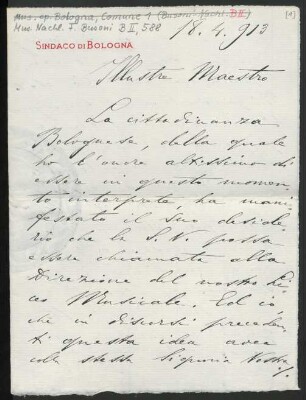 Mus. ep. Bologna, Comune 1 (Busoni-Nachl. B II)
Mus. Nachl. F. Busoni B II, 588
[1]
SINDACO DI BOLOGNA
18. 4. 913
Illustre Maestro
La cittadinanza
Bolognese, della quale
ho l'onore altissimo di
essere in questo momen-
to interprete, ha mani-
festato il suo deside-
rio che la S. V. possa
essere chiamata alla
Direzione del nostro Li-
ceo Musicale. Ed io,
che in discorsi preceden-
ti questa idea avevo
colla stessa Signoria Vostra
./.